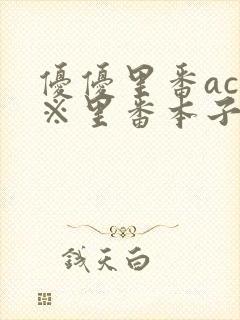 優優里番ac
※里番本子
錢天白